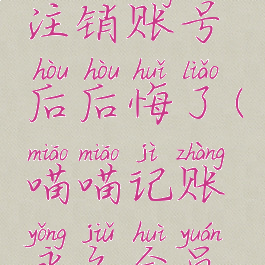 注销账号
hòu hòu huǐ liǎo
后后悔了(
miāo miāo jì zhàng
喵喵记账
yǒng jiǔ huì yuán
永久会员